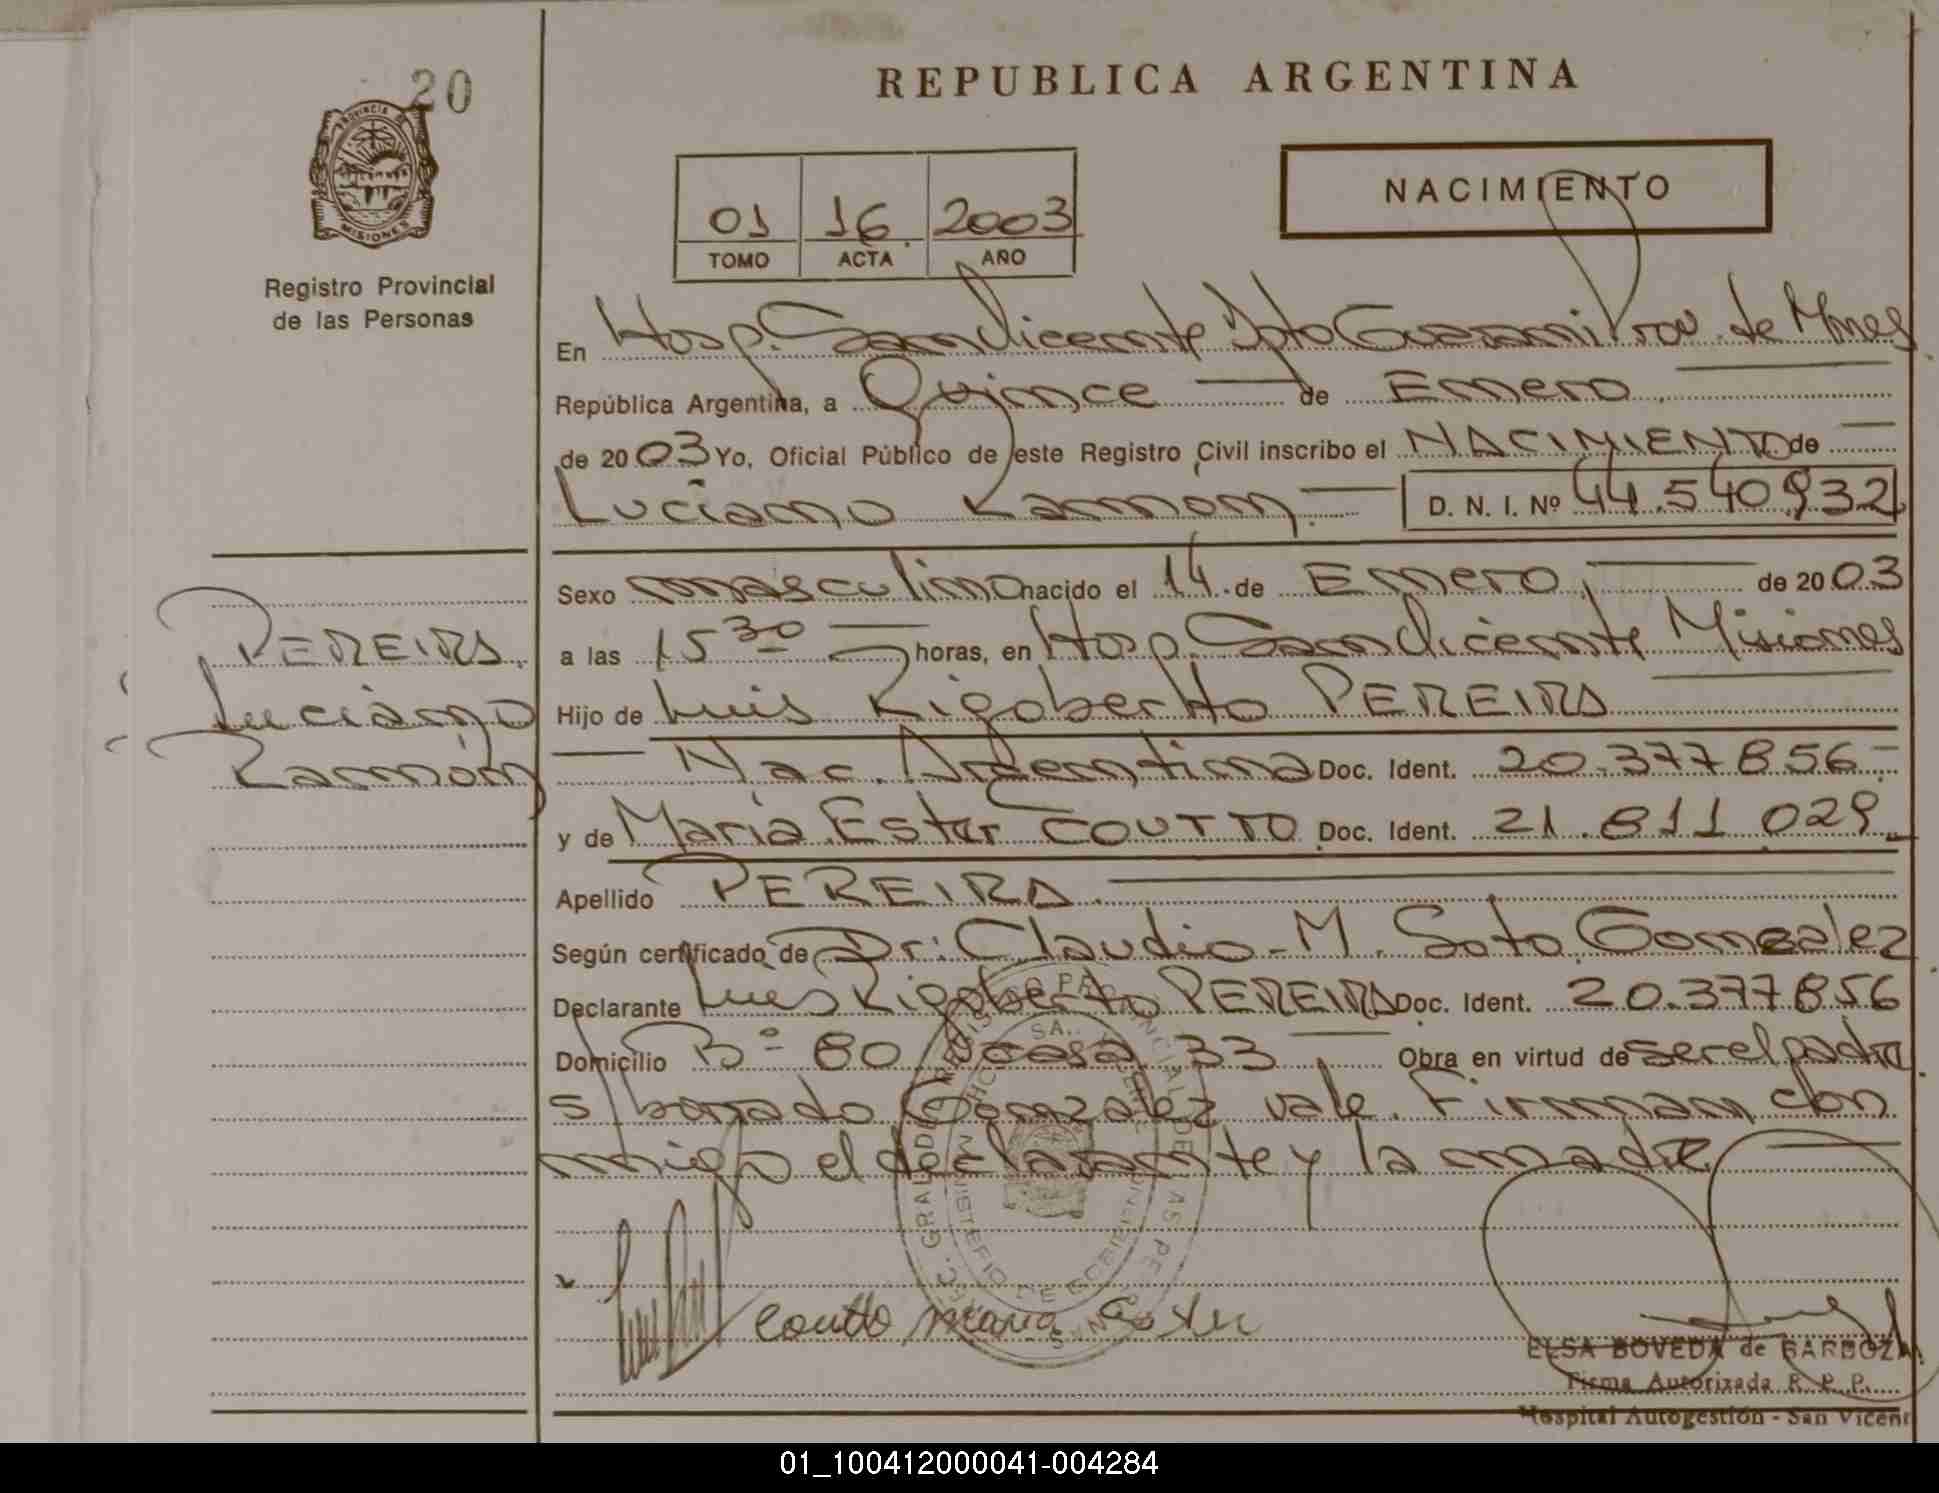 20
REPUBLICA ARGENTINA
PROVINCIA DE
MISIONES
Registro Provincial
de las Personas
NACIMIENTO
01 16 2003
TOMO ACTA AÑO
En Hosp. San Vicente Dpto Guarani Prov. de Mnes
República Argentina, a Quince de Enero
de 2003 Yo, Oficial Público de este Registro Civil inscribo el NACIMIENTO de
Luciano Ramón D. N. I. Nº 44.540.932
Sexo masculino nacido el 14 de Enero de 2003
PEREIRA
Luciano
Ramón
a las 15 30 horas, en Hosp. San Vicente Misiones
Hijo de Luis Rigoberto PEREIRA
Nac. Argentina Doc. Ident. 20.377856
y de Maria Ester COUTTO Doc. Ident. 21.811.029
Apellido PEREIRA
Según certificado de Dr: Claudio - M. Soto Gonzalez
Declarante Luis Rigoberto PEREIRA Doc. Ident. 20.377856
Domicilio Bº 80 casa 33 Obra en virtud de ser el padre
s/borrado Gonzalez vale. Firman con
migo el declarante y la madre
Coutto Maria Ester
ELSA BOVEDA de BARBOZA
Firma Autorizada R. P. P.
Hospital Autogestión - San Vicent
01_100412000041-004284